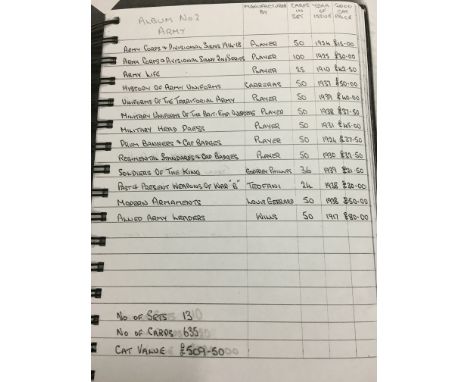 ALBUM No 2 MANUFACTURED CARDS YEAR GOOD
ARMY BY IN SET OF ISSUE CAT PRICE
ARMY CORPS & DIVISIONAL SIGNS 1914-18 PLAYER 50 1924 £15-00
ARMY CORPS & DIVISIONAL SIGNS 2nd SERIES PLAYER 100 1925 £30-00
ARMY LIFE PLAYER 25 1910 £62-50
HISTORY OF ARMY UNIFORMS CARRERAS 50 1937 £50-00
UNIFORMS OF THE TERRITORIAL ARMY PLAYER 50 1939 £40-00
MILITARY UNIFORMS OF THE BRIT. EMP. OVERSEAS PLAYER 50 1938 £37-50
MILITARY HEAD DRESS PLAYER 50 1931 £45-00
DRUM BANNERS & CAP BADGES PLAYER 50 1924 £37-50
REGIMENTAL STANDARDS & CAP BADGES PLAYER 50 1930 £32-50
SOLDIERS OF THE KING GODFREY PHILLIPS 36 1939
PAST & PRESENT WEAPONS OF WAR "B" TEOFANI 24 1938
MODERN ARMAMENTS LOUIS GERRARD 50 1938 £50-00
ALLIED ARMY LEADERS WILLS 50 1917 £80-00
No OF SETS 13
No OF CARDS 635
CAT VALUE £509-50